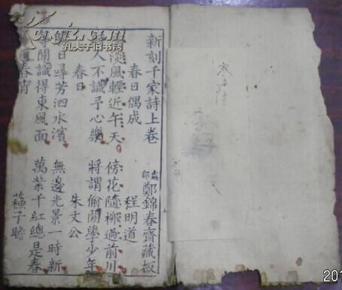 新刻千家詩上卷
春日偶成 程明道
淡風輕近午天 傍花隨柳過前川
人不識予心樂 將謂偷閒學少年
春日 朱文公
日尋芳泗水濱 無邊光景一時新
等閒識得東風面 萬紫千紅總是春
春宵 蘇子瞻
鄭錦春齋藏板
201